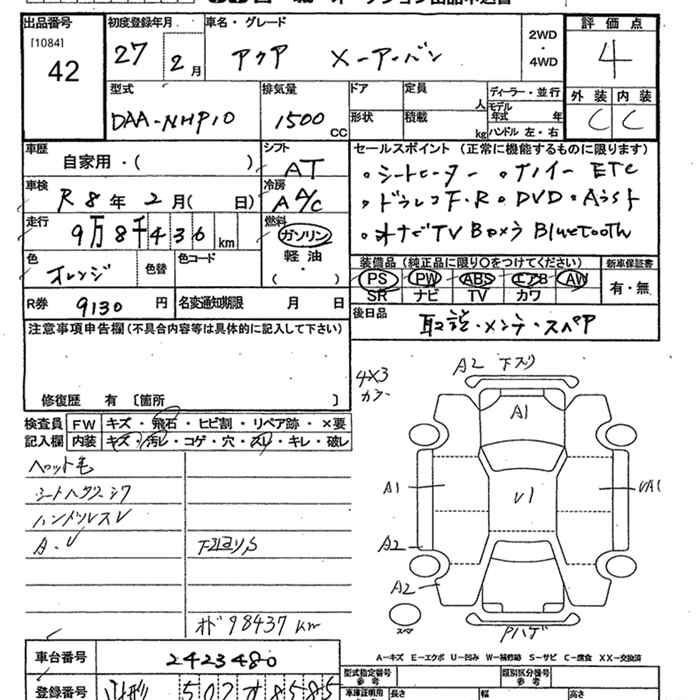 出品番号 初度登録年月 車名・グレード 評価点
[1084]
42 27 2月 アクア X-アーバン 2WD・4WD 4
型式 排気量 ドア 定員 人 ディーラー・並行 外装 内装
DAA-NHP10 1500cc 形状 積載 kg モデル年式 年 C C
ハンドル 左・右
車歴 自家用・( ) シフト AT セールスポイント (正常に機能するものに限ります)
車検 R8年 2月( 日) 冷房 A A/C 。シートヒーター 。ナノイー ETC
走行 9万8千436km 燃料 ガソリン 軽油 ( ) 。ドラレコF・R 。DVD。
。オナビTV Bカメラ Bluetooth
色 オレンジ 色替 色コード 装備品 (純正品に限り○をつけてください) 新車保証書
PS PW ABS エアB AW 有・無
SR ナビ TV カワ
R券 9130円 名変通知期限 月 日 後日品
取説・メンテ・スペア
注意事項申告欄(不具合内容等は具体的に記入して下さい)
修復歴 有 〔箇所 〕
検査員記入欄 FW キズ・飛石・ヒビ割・リペア跡・×要
内装 キズ・汚レ・コゲ・穴・スレ・キレ・破レ
ペット毛
ハンドルスレ
オド 98437km
4×3
カラー
A2 下スリ
A1
A1 U1 UA1
A2
A2
スペア
Pハゲ
A-キズ E-エクボ U-凹み W-補修跡 S-サビ C-腐食 XX-交換済
車台番号 2423480
型式指定番号 参考 類別区分番号 参考
登録番号 502 8585 長さ 幅 高さ